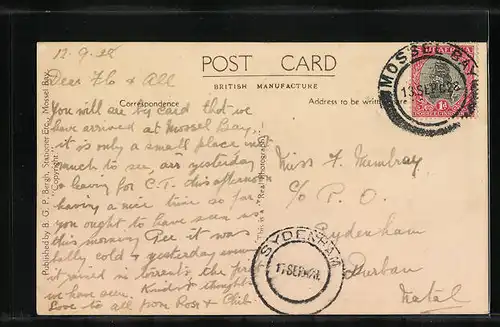 12.9.28
POST CARD
BRITISH MANUFACTURE
Correspondence
Address to be writ
Dear Flo & All
You will see by card that we
have arrived at Mossel Bay,
it is only a small place not
much to see, arr yesterday
& leaving for C.T. this afternoon
having a nice time so far,
you ought to have seen us
this morning Gee it was
bally cold & yesterday even
it rained in torrents the first
we have seen. Kindest thoughts
Love to all from Rose &
Miss F. Membray
c/o P. O.
Sydenham
Durban
Natal
MOSSEL BAY
13 SEP 28
1d
SYDENHAM
17 SEP
Published by B. G. P. Bergh, Stationer Etc., Mossel Bay.
"Copyright."
This is a "Real Photograph"